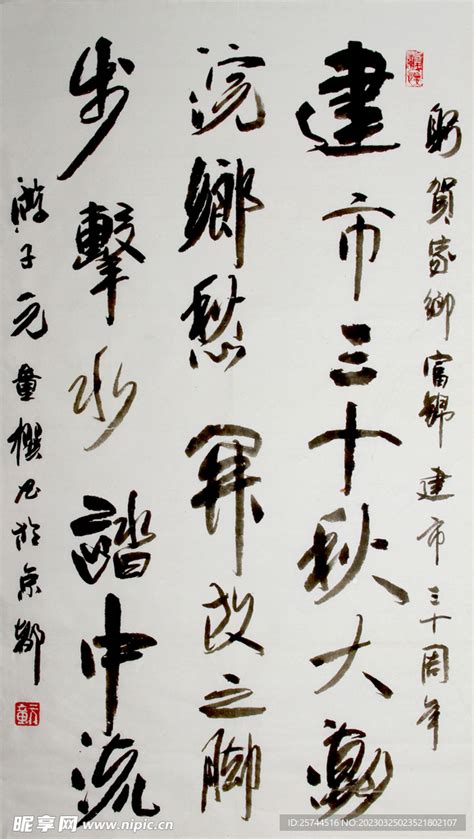 躬賀家鄉富錦建市三十周年
建市三十秋大
浣鄉愁開放之腳
步擊水踏中流
游子元童撰书於京都
昵享网 www.nipic.cn
ID:25744516 NO:20230325023521802107